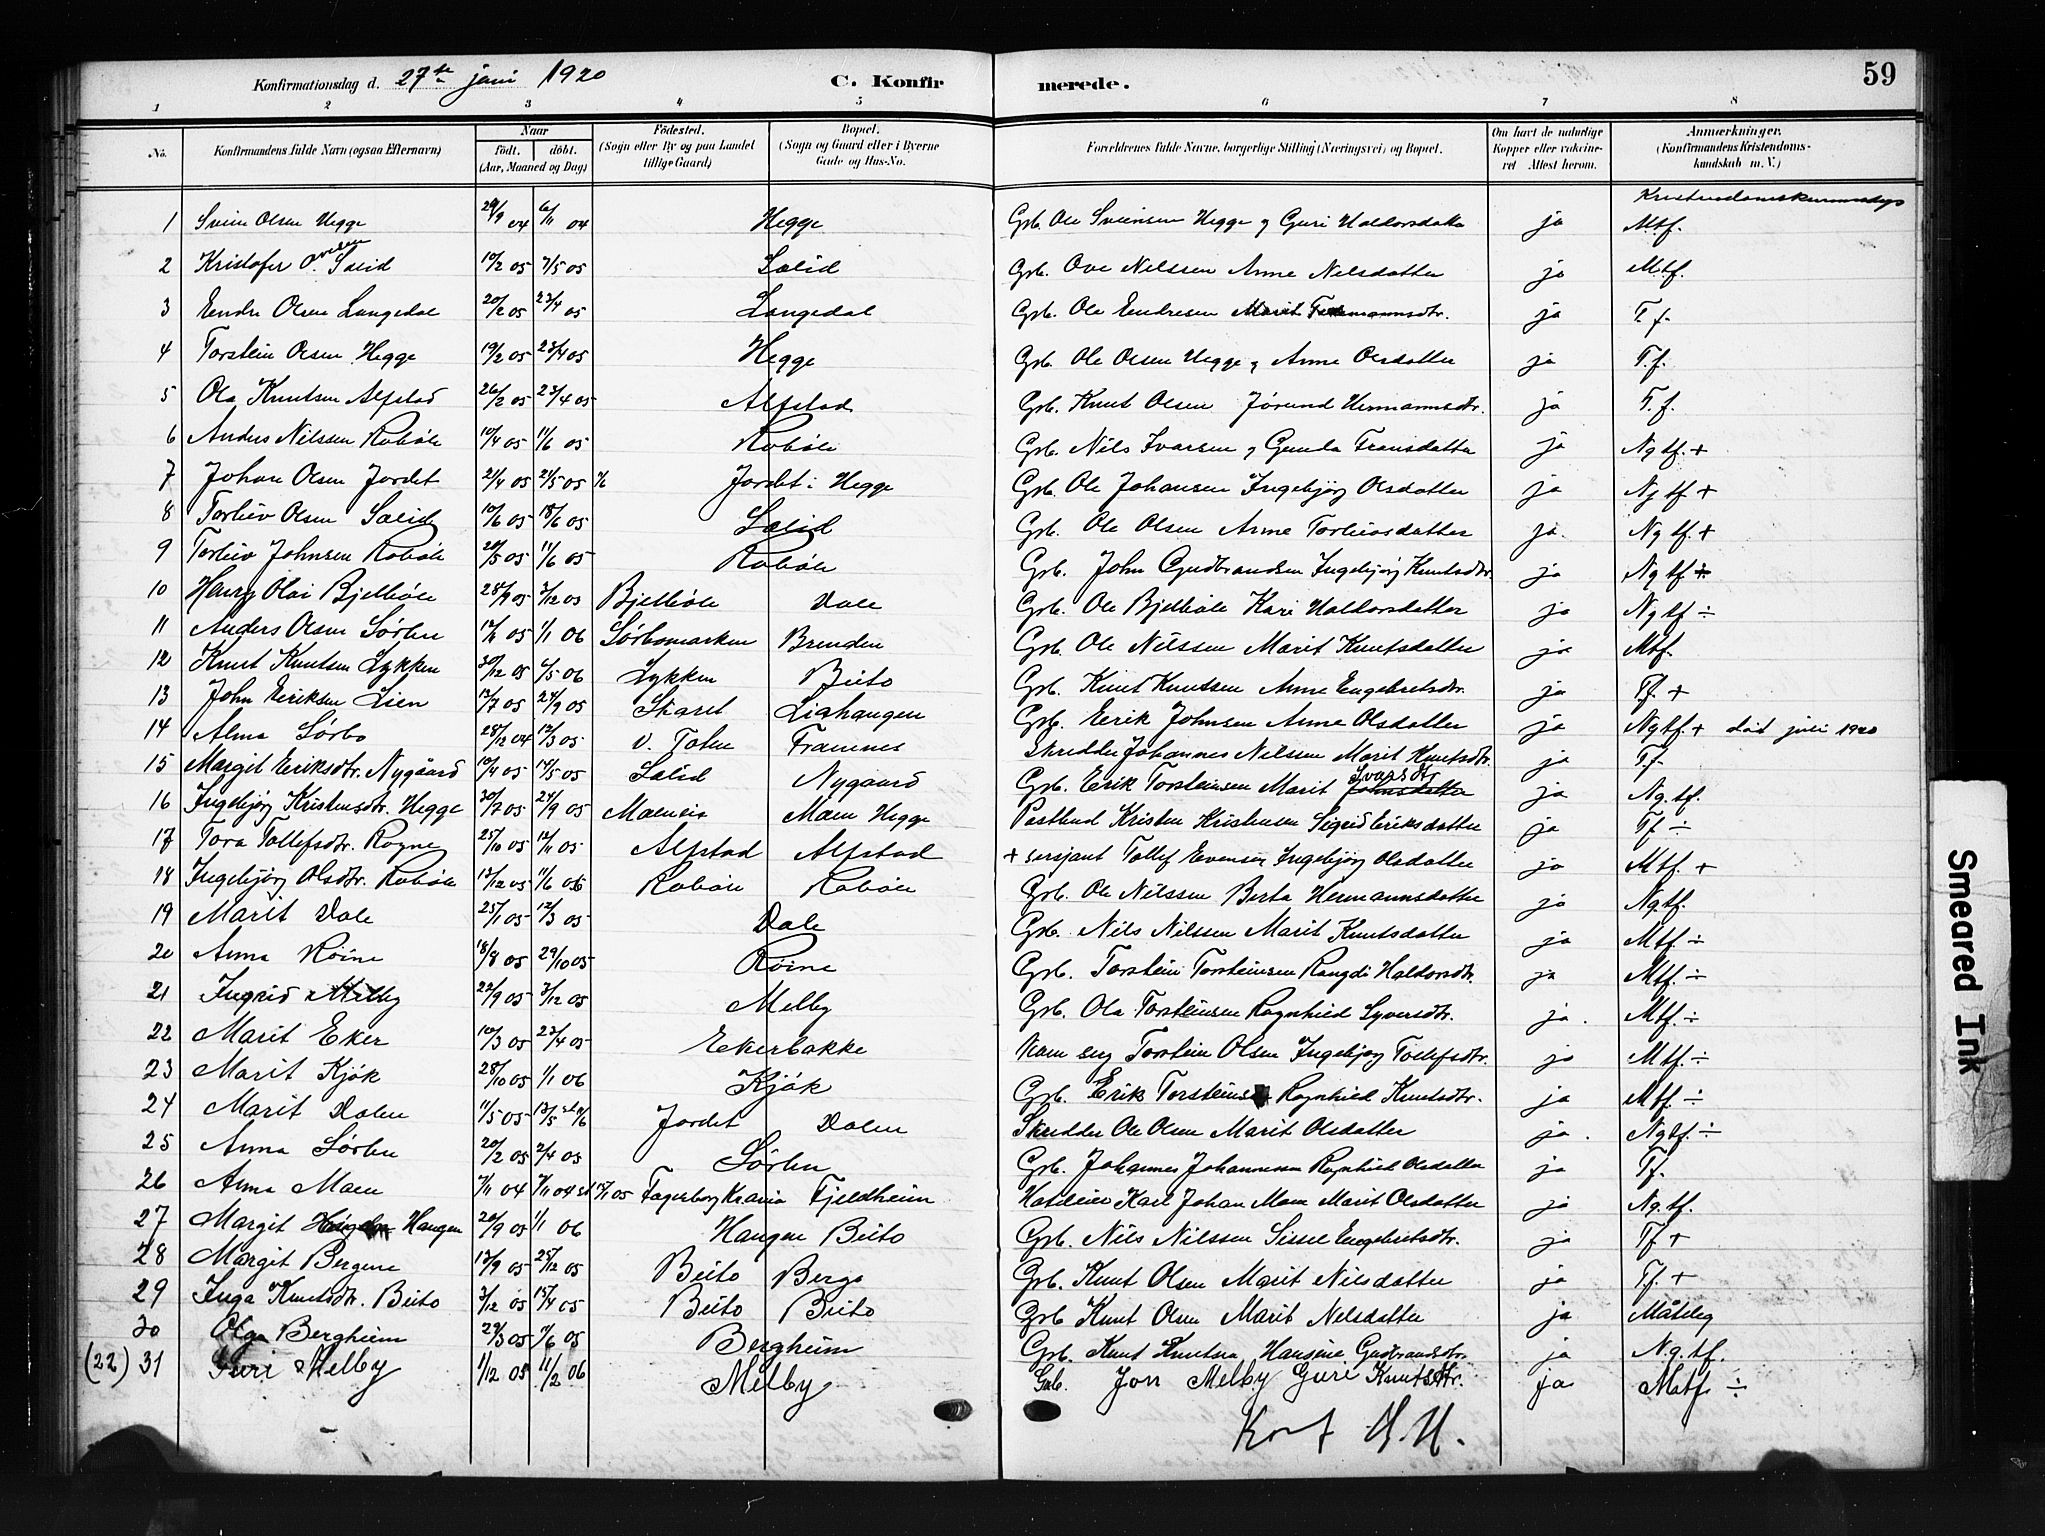 Konfirmationsdag d. 27de juni 1920 C. Konfirmerede. 59
1 2 3 4 5 6 7 8
No. Konfirmandens fulde Navn (ogsaa Efternavn) Naar födt. döbt. (Aar, Maaned og Dag) Födested. (Sogn eller By og paa Landet tillige Gaard) Bopæl. (Sogn og Gaard eller i Byerne Gade og Hus-No. Forældrenes fulde Navne, borgerlige Stilling (Næringsvei) og Bopæl. Om havt de naturlige Kopper eller vaccineret Attest herom. Anmærkninger. (Konfirmandens Kristendomskundskab m. V.)
1 Svein Olsen Hegge 24/9 04 6/11 04 Hegge Grb. Ole Sveinsen Hegge og Guri Haldorsdatter ja Mtf.
2 Kristofer Ovesen Lalid 10/2 05 7/5 05 Lalid Grb. Ove Nilssen Anne Nilsdatter ja Mtf.
3 Endre Olsen Langedal 20/2 05 23/4 05 Langedal Grb. Ole Endresen Marit ja T.f.
4 Torstein Olsen Hegge 19/2 05 23/4 05 Hegge Grb. Ole Olsen Hegge og Anne Olsdatter ja T.f.
5 Ola Knutsen Alfstad 26/2 05 23/4 05 Alfstad Grb. Knut Olsen Jørund Hermannsdtr. ja T.f.
6 Anders Nilssen Robøle 10/4 05 11/6 05 Robøle Grb. Nils Ivarsen og Gunda Fransdatter ja Ng tf. +
7 Johan Olsen Jordet 21/4 05 21/5 05 Jordet i Hegge Grb. Ole Johansen Ingebjørg Olsdatter ja Ng tf +
8 Torleiv Olsen Lalid 10/6 05 18/6 05 Lalid Grb. Ole Olsen Anne Torleivsdatter ja. Ng tf. +
9 Torleiv Johnsen Robøle 20/5 05 11/6 05 Robøle Grb. John Gudbrandsen Ingebjørg Knutsdtr. ja Ng tf
10 Harry Olai Bjelbøle 28/9 05 3/12 05 Bjelbøle Dale Grb. Ole Bjelbøle Kari Haldorsdatter ja Ng tf ÷
11 Anders Olsen Sørbu 1/1 06 Sørbomarken Brenden Grb. Ole Nilssen Marit Knutsdatter ja Mtf.
12 Knut Knutsen Lykken 30/12 05 4/5 06 Lykken Beito Grb. Knut Knutsen Anne Engebretsdtr. ja Tf. +
13 John Eriksen Lien 13/7 05 24/9 05 Skaret Liahaugen Grb. Erik Johnsen Anne Olsdatter ja Ngtf. + död juli 1920
14 Alma Sørbo 28/12 04 12/3 05 V. Toten Framnes Skredder Johannes Nilssen Marit Knutsdtr. ja Tf.
15 Margit Eriksdtr. Nygaard 10/4 05 14/5 05 Lalid Nygaard Grb. Erik Torsteinsen Marit Ivarsdtr Johnsdatter ja Ng. tf.
16 Ingebjørg Kristensdtr. Hegge 30/7 05 24/9 05 Moen Hegge Postbud Kristen Kristensen Sigrid Eriksdatter ja Tf ÷
17 Tora Tollefsdtr. Rogne 25/10 05 12/11 05 Alfstad Alfstad + sersjant Tollef Evensen Ingebjørg Olsdatter ja Mtf. +
18 Ingebjørg Olsdtr. Robøle 13/12 05 11/6 Robøle Robøle Grb. Ole Nilssen Berta Hermannsdatter ja Ng.tf.
19 Marit Dale 25/1 05 12/3 05 Dale Grb. Nils Nilssen Marit Knutsdatter ja Mtf. ÷
20 Anna Røine 18/8 05 29/10 05 Røine Grb. Torstein Torsteinsen Rangdi Haldorsdtr. ja Mtf. ÷
21 Ingrid Melby 22/9 05 3/12 05 Melby Grb. Ola Torsteinsen Ragnhild Syversdtr. ja. Mtf. ÷
22 Marit Eker 10/3 05 23/4 05 Ekerbakke Torstein Olsen Ingebjørg Tollefsdtr. ja Mtf. ÷
23 Marit Kjøk 28/10 05 1/1 06 Kjøk Grb. Erik Torsteins Ragnhild Knutsdtr. ja Mtf. ÷
24 Marit Dalen 11/5 05 Jordet Dalen Skredder Ole Olsen Marit Olsdatter ja. Ngtf. ÷
25 Anna Sørbu 20/2 05 2/4 05 Sørbu Grb. Johannes Johannesen Ragnhild Olsdatter ja Tf.
26 Anna Moen 7/11 04 Fagerborg Kr.ania Fjeldheim Karl Johan Moen Marit Olsdatter ja Ng. tf.
27 Margit Haugen 20/9 05 1/1 06 Haugen Beito Grb. Nils Nilssen Sissel Engebretsdtr. ja Tf +
28 Margit Bergene 13/9 05 25/12 05 Beito Bergo Grb. Knut Olsen Marit Nilsdatter ja Tf. +
29 Inga Knutsdtr. Beito 3/12 05 15/4 05 Beito Beito Grb Knut Olsen Marit Nelsdatter ja Måteleg
30 Olga Bergheim 29/3 05 11/6 05 Bergheim Grb. Knut Knutsen Hansine Gudbrandsdtr. ja Ng. tf.
(22) 31 Guri Melby 1/12 05 11/2 06 Melby Grb. Jon Melby Guri Knutsdtr. ja Mtf. ÷
Konf H.H.
Smeared Ink